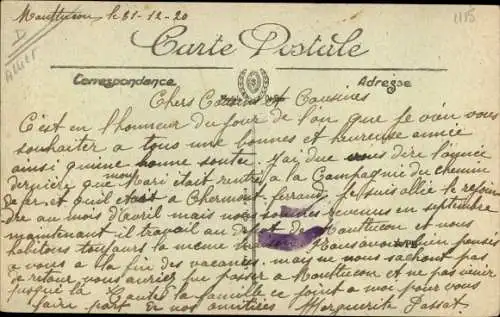 Montlucon le 31-12-20
1185
I
Allier
Carte Postale
Correspondance
Adresse
Chers Cousins et Cousines
C'est en l'honneur du jour de l'an que je vien vous
souhaiter a tous une bonnes et heureuse annie
ainsi qu'une bonne santee. J'ai due vous dire l'année
dernière que mon Mari était rentré a la Campagnie du chemin
de fer et qu'il était a Clermont ferrand. Je suis allée le rejoin
dre au mois d'Avril mais nous sommes revenus en septembre
maintenant il travail au depot de Montlucon et nous
habitons toujours la meme Nous avons bien pensés
a vous a la fin des vacances. mais ne nous sachant pas
de retour vous auriez pu passer a Montlucon et ne pas venir
jusque la Toute la famille se joint a moi pour vous
faire part de nos amitiées Marguerite Passat